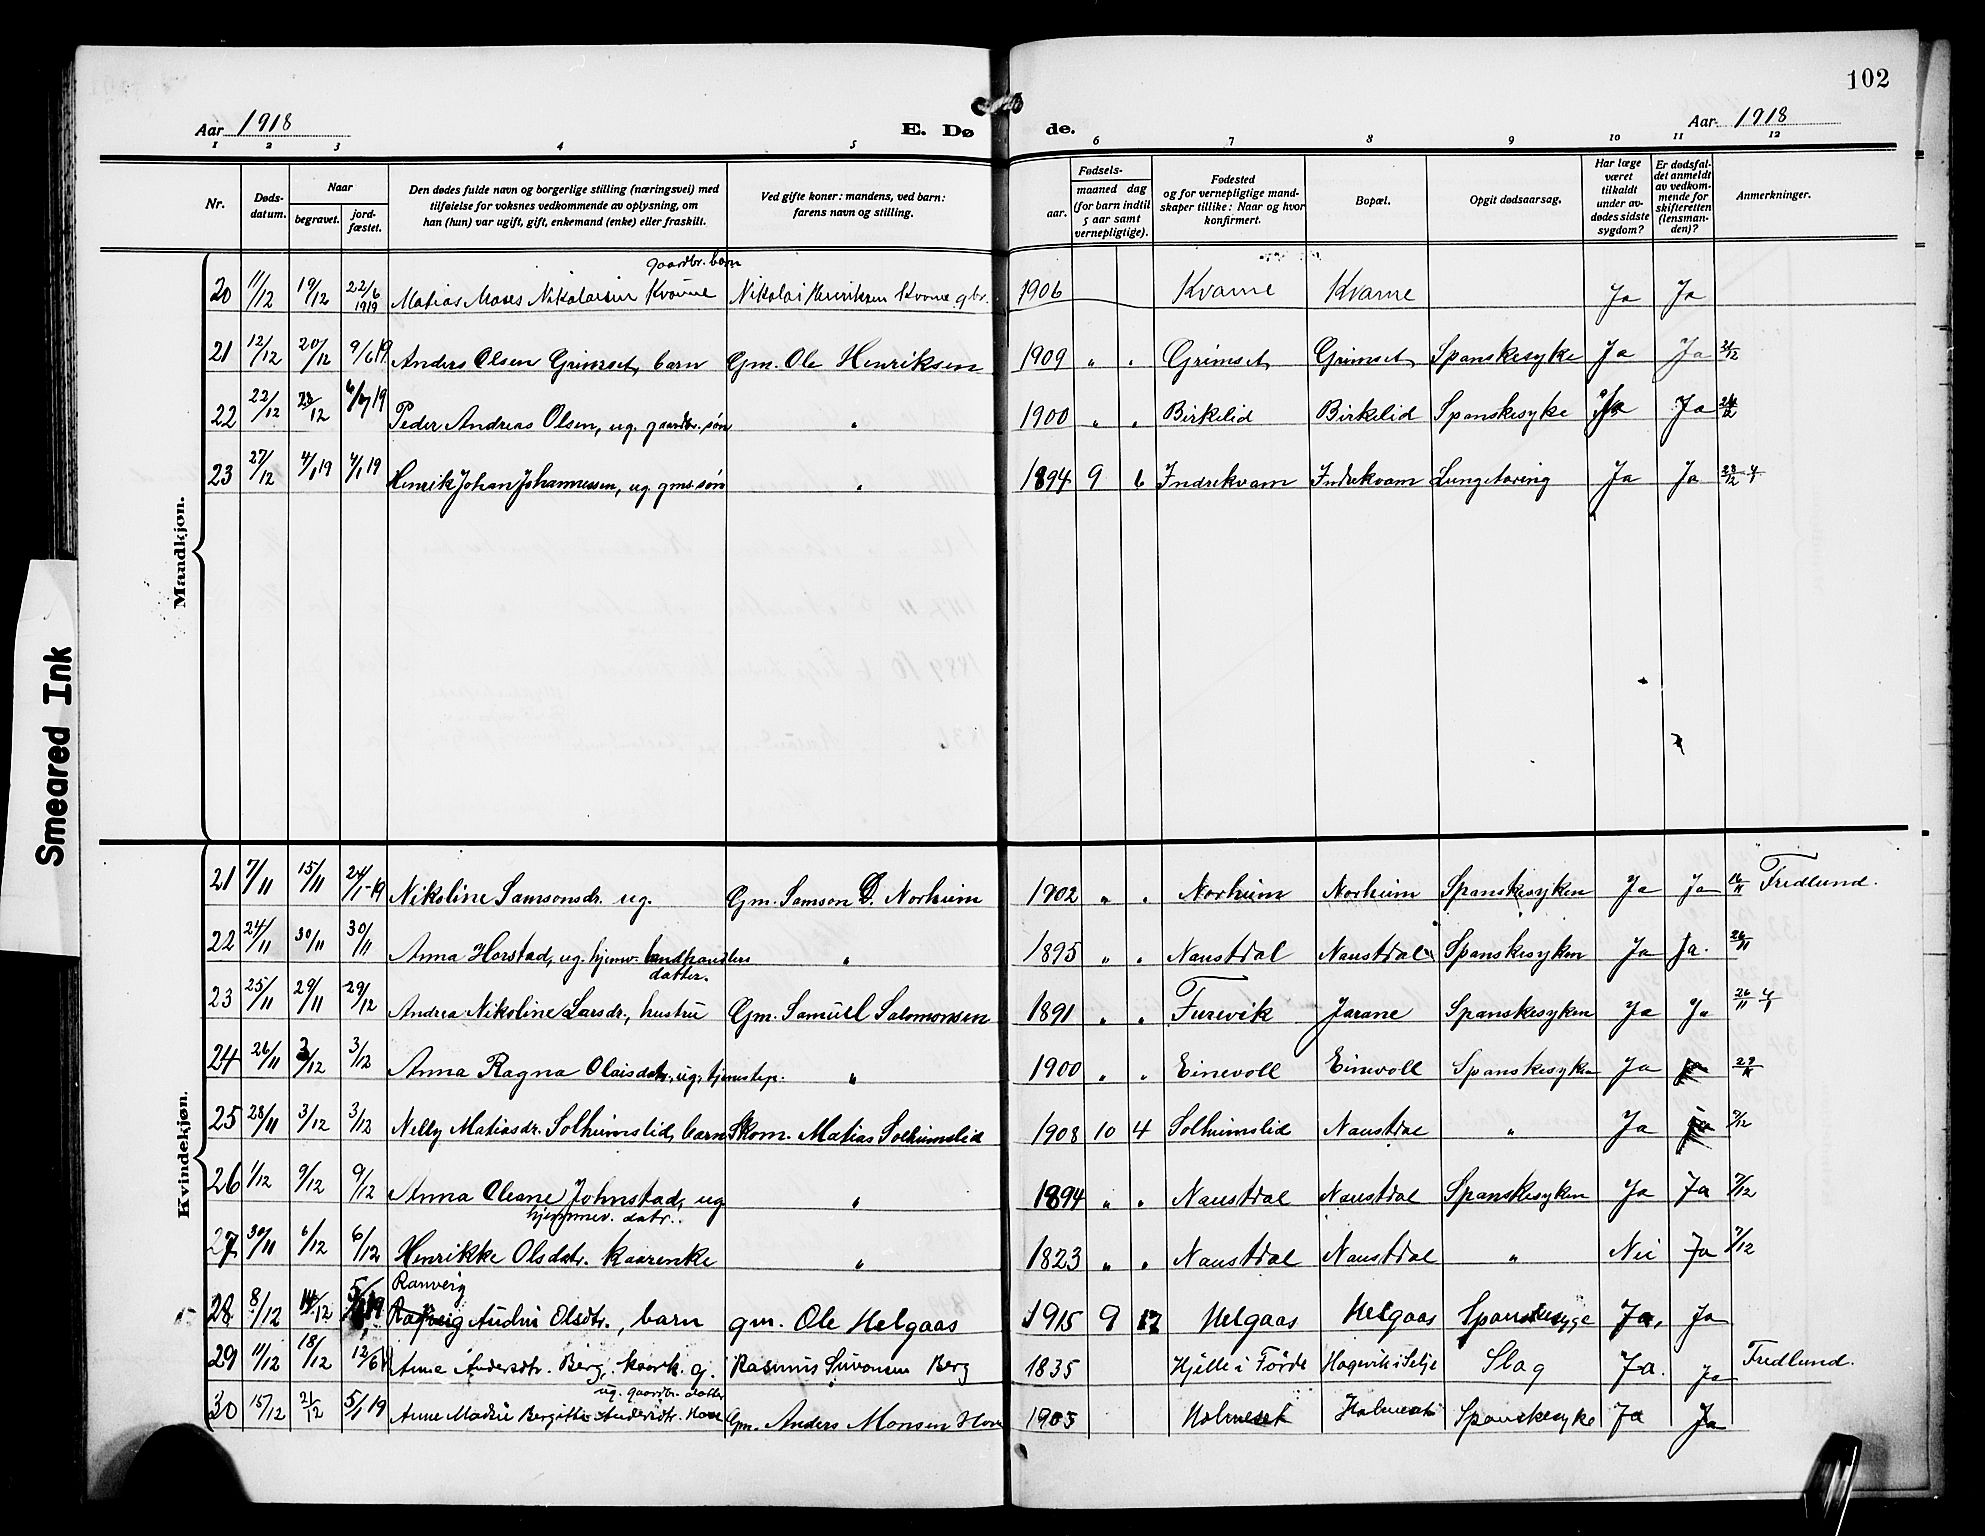 102
Aar 1918
E. Dø
de.
Aar 1918
1 2 3 4 5 6 7 8 9 10 11 12
Nr.
Døds-
datum.
Naar
begravet.
jord-
fæstet.
Den dødes fulde navn og borgerlige stilling (næringsvei) med
tilføielse for voksnes vedkommende av oplysning, om
han (hun) var ugift, gift, enkemand (enke) eller fraskilt.
Ved gifte koner: mandens, ved barn:
farens navn og stilling.
Fødsels-
aar.
maaned dag
(for barn indtil
5 aar samt
vernepligtige).
Fødested
og for vernepligtige mand-
skaper tillike: Naar og hvor
konfirmert.
Bopæl.
Opgit dødsaarsag.
Har læge
været
tilkaldt
under av-
dødes sidste
sygdom?
Er dødsfal-
det anmeldt
av vedkom-
mende for
skifteretten
(lensman-
den)?
Anmerkninger.
Mandkjøn.
gaardbr. barn
20 11/12 19/12 22/6 1919 Matias Moses Nikolaisen Kvame Nikolai Henriksen Kvame gbr. 1906 Kvame Kvame Ja Ja
21 12/12 20/12 9/6 19 Anders Olsen Grimset, barn Gm. Ole Henriksen 1909 " " Grimset Grimset Spanskesyke Ja Ja 21/12
22 22/12 28/12 6/7 19 Peder Andreas Olsen, ug. gaardbr. søn " 1900 " " Birkelid Birkelid Spanskesyke Ja Ja
23 27/12 4/1 19 4/1 19 Henrik Johan Johannessen, ug. gms. søn " 1894 9 6 Indrekvam Indrekvam Lungetæring Ja Ja 28/12 4/1
Kvindekjøn.
21 7/11 15/11 24/1-19 Nikoline Samsonsdr. ug. Gm. Samson D. Norheim 1902 " " Norheim Norheim Spanskesyken Ja Ja 16/11 Fredlund.
22 24/11 30/11 30/11 Anna Horstad, ug. hjemv. landhandlers " 1895 " " Naustdal Naustdal Spanskesyken Ja Ja. 26/11
datter.
23 25/11 29/11 29/12 Andrea Nikoline Larsdr., hustru Gm. Samuel Salomonsen 1891 " " Furevik Jarane Spanskesyken Ja Ja 26/11 4/1
24 26/11 3/12 3/12 Anna Ragna Olaisdatr., ug. tjenestep. " 1900 " " Einevoll Einevoll Spanskesyken Ja Ja 29/11
25 28/11 3/12 3/12 Nelly Matiasdr. Solheimslid, barn Skom. Matias Solheimslid 1908 10 4 Solheimslid Naustdal " Ja Ja 3/12
26 1/12 9/12 9/12 Anna Oleane Johnstad, ug " 1894 " " Naustdal Naustdal Spanskesyken Ja Ja 7/12
hjemmev. datr.
27 30/11 6/12 6/12 Henrikke Olsdatr. kaarenke " 1823 " " Naustdal Naustdal " Nei Ja 7/12
Ranveig
28 8/12 14/12 Audni Olsdtr., barn gm. Ole Helgaas 1915 9 17 Helgaas Helgaas Spanskesyge Ja, Ja
29 11/12 18/12 12/6 19 Anne Andersdtr. Berg, kaark. g. Rasmus Simonsen Berg 1835 Hjelle i Førde Hagevik i Selje Slag Ja. Ja Fredlund.
ug. gaardbr. datter
30 15/12 21/12 5/1 19 Anne Madie Bergitte Andersdtr. Hove Gm. Anders Monsen Hove 1905 Holmeset Holmeset Spanskesyke Ja Ja
Smeared Ink